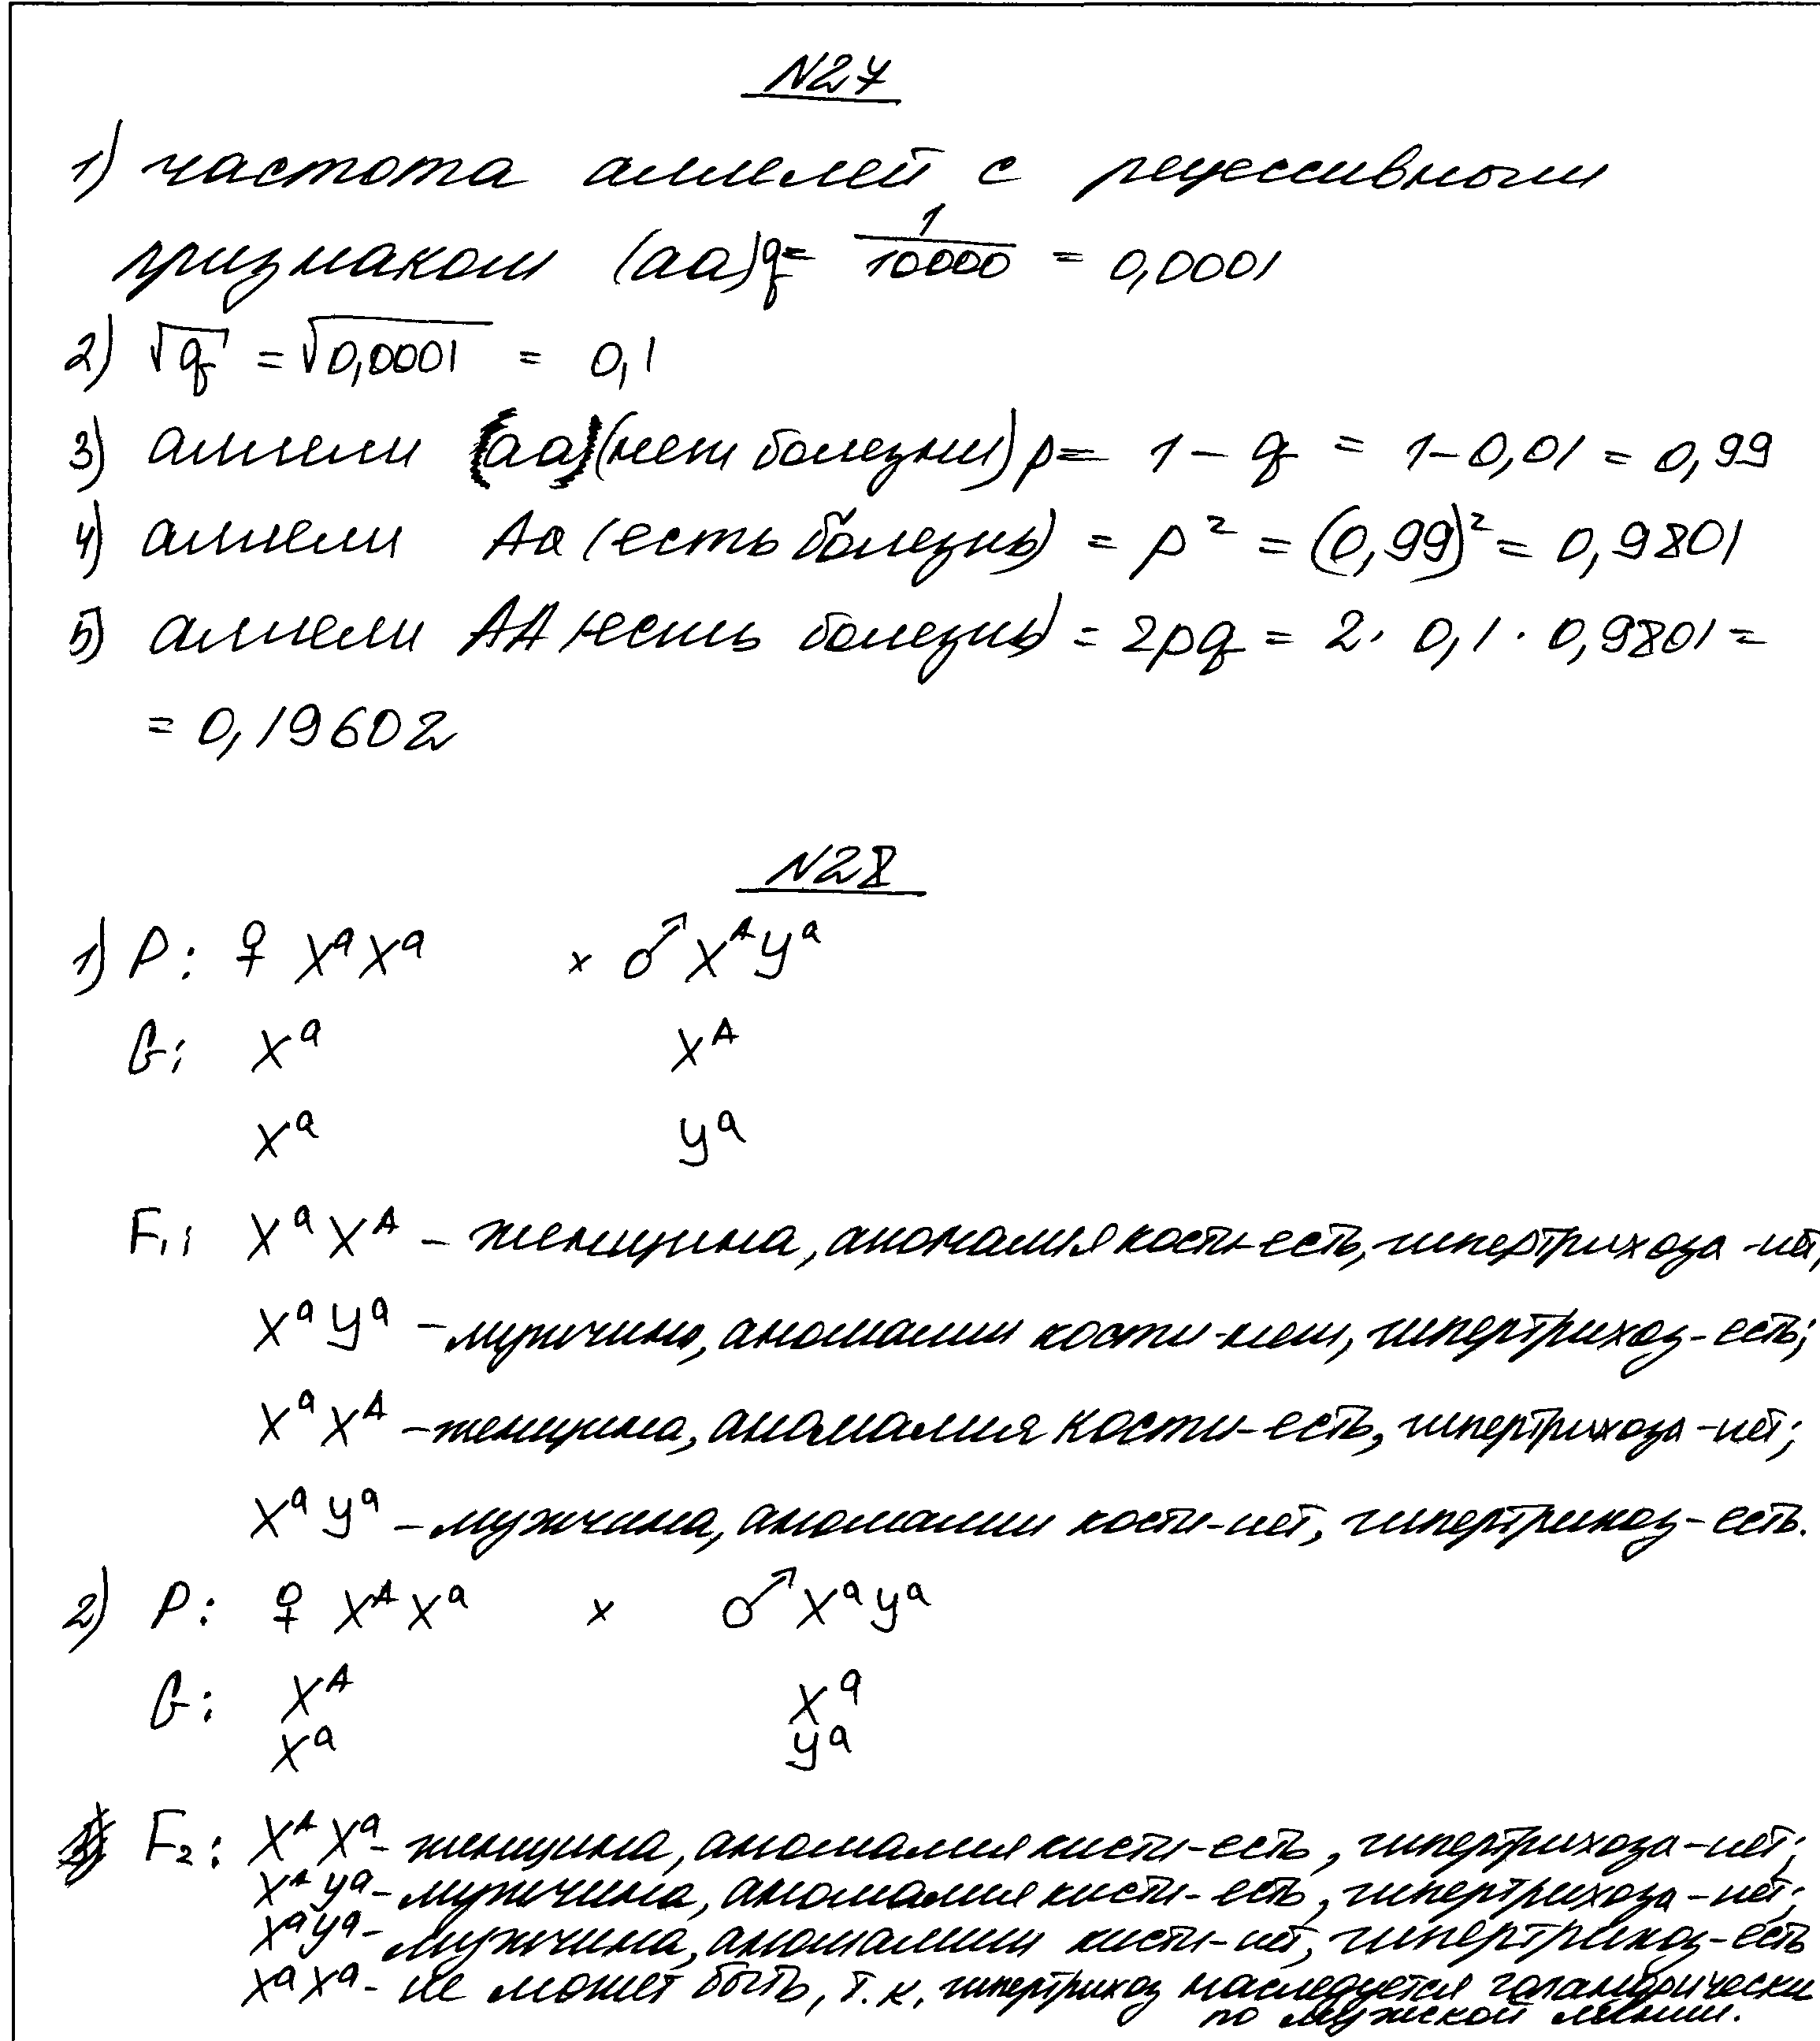 N27
1) частота аллелей с рецессивным
признаком (aa)q= 1/10000 = 0,0001
2) √q = √0,0001 = 0,1
3) аллели (aa)(нет болезни) p= 1 - q = 1-0,01 = 0,99
4) аллели Aa (есть болезнь) = p² = (0,99)² = 0,9801
5) аллели AA (есть болезнь) = 2pq = 2 · 0,1 · 0,9801 =
= 0,19602
N28
1) P: ♀ XᵃXᵃ × ♂ XᴬYᵃ
G: Xᵃ Xᴬ
Xᵃ Yᵃ
F₁: XᵃXᴬ - женщина, аномалия кости-есть, гипертрихоза-нет;
XᵃYᵃ - мужчина, аномалии кости-нет, гипертрихоз-есть;
XᵃXᴬ - женщина, аномалия кости-есть, гипертрихоза-нет;
XᵃYᵃ - мужчина, аномалии кости-нет, гипертрихоз-есть.
2) P: ♀ XᴬXᵃ × ♂ XᵃYᵃ
G: Xᴬ Xᵃ
Xᵃ Yᵃ
F₂: XᴬXᵃ - женщина, аномалия кисти-есть, гипертрихоза-нет;
XᴬYᵃ - мужчина, аномалия кисти-есть, гипертрихоза-нет;
XᵃYᵃ - мужчина, аномалии кисти-нет, гипертрихоз-есть
XᵃXᵃ - не может быть, т.к. гипертрихоз наследуется голандрически
по мужской линии.